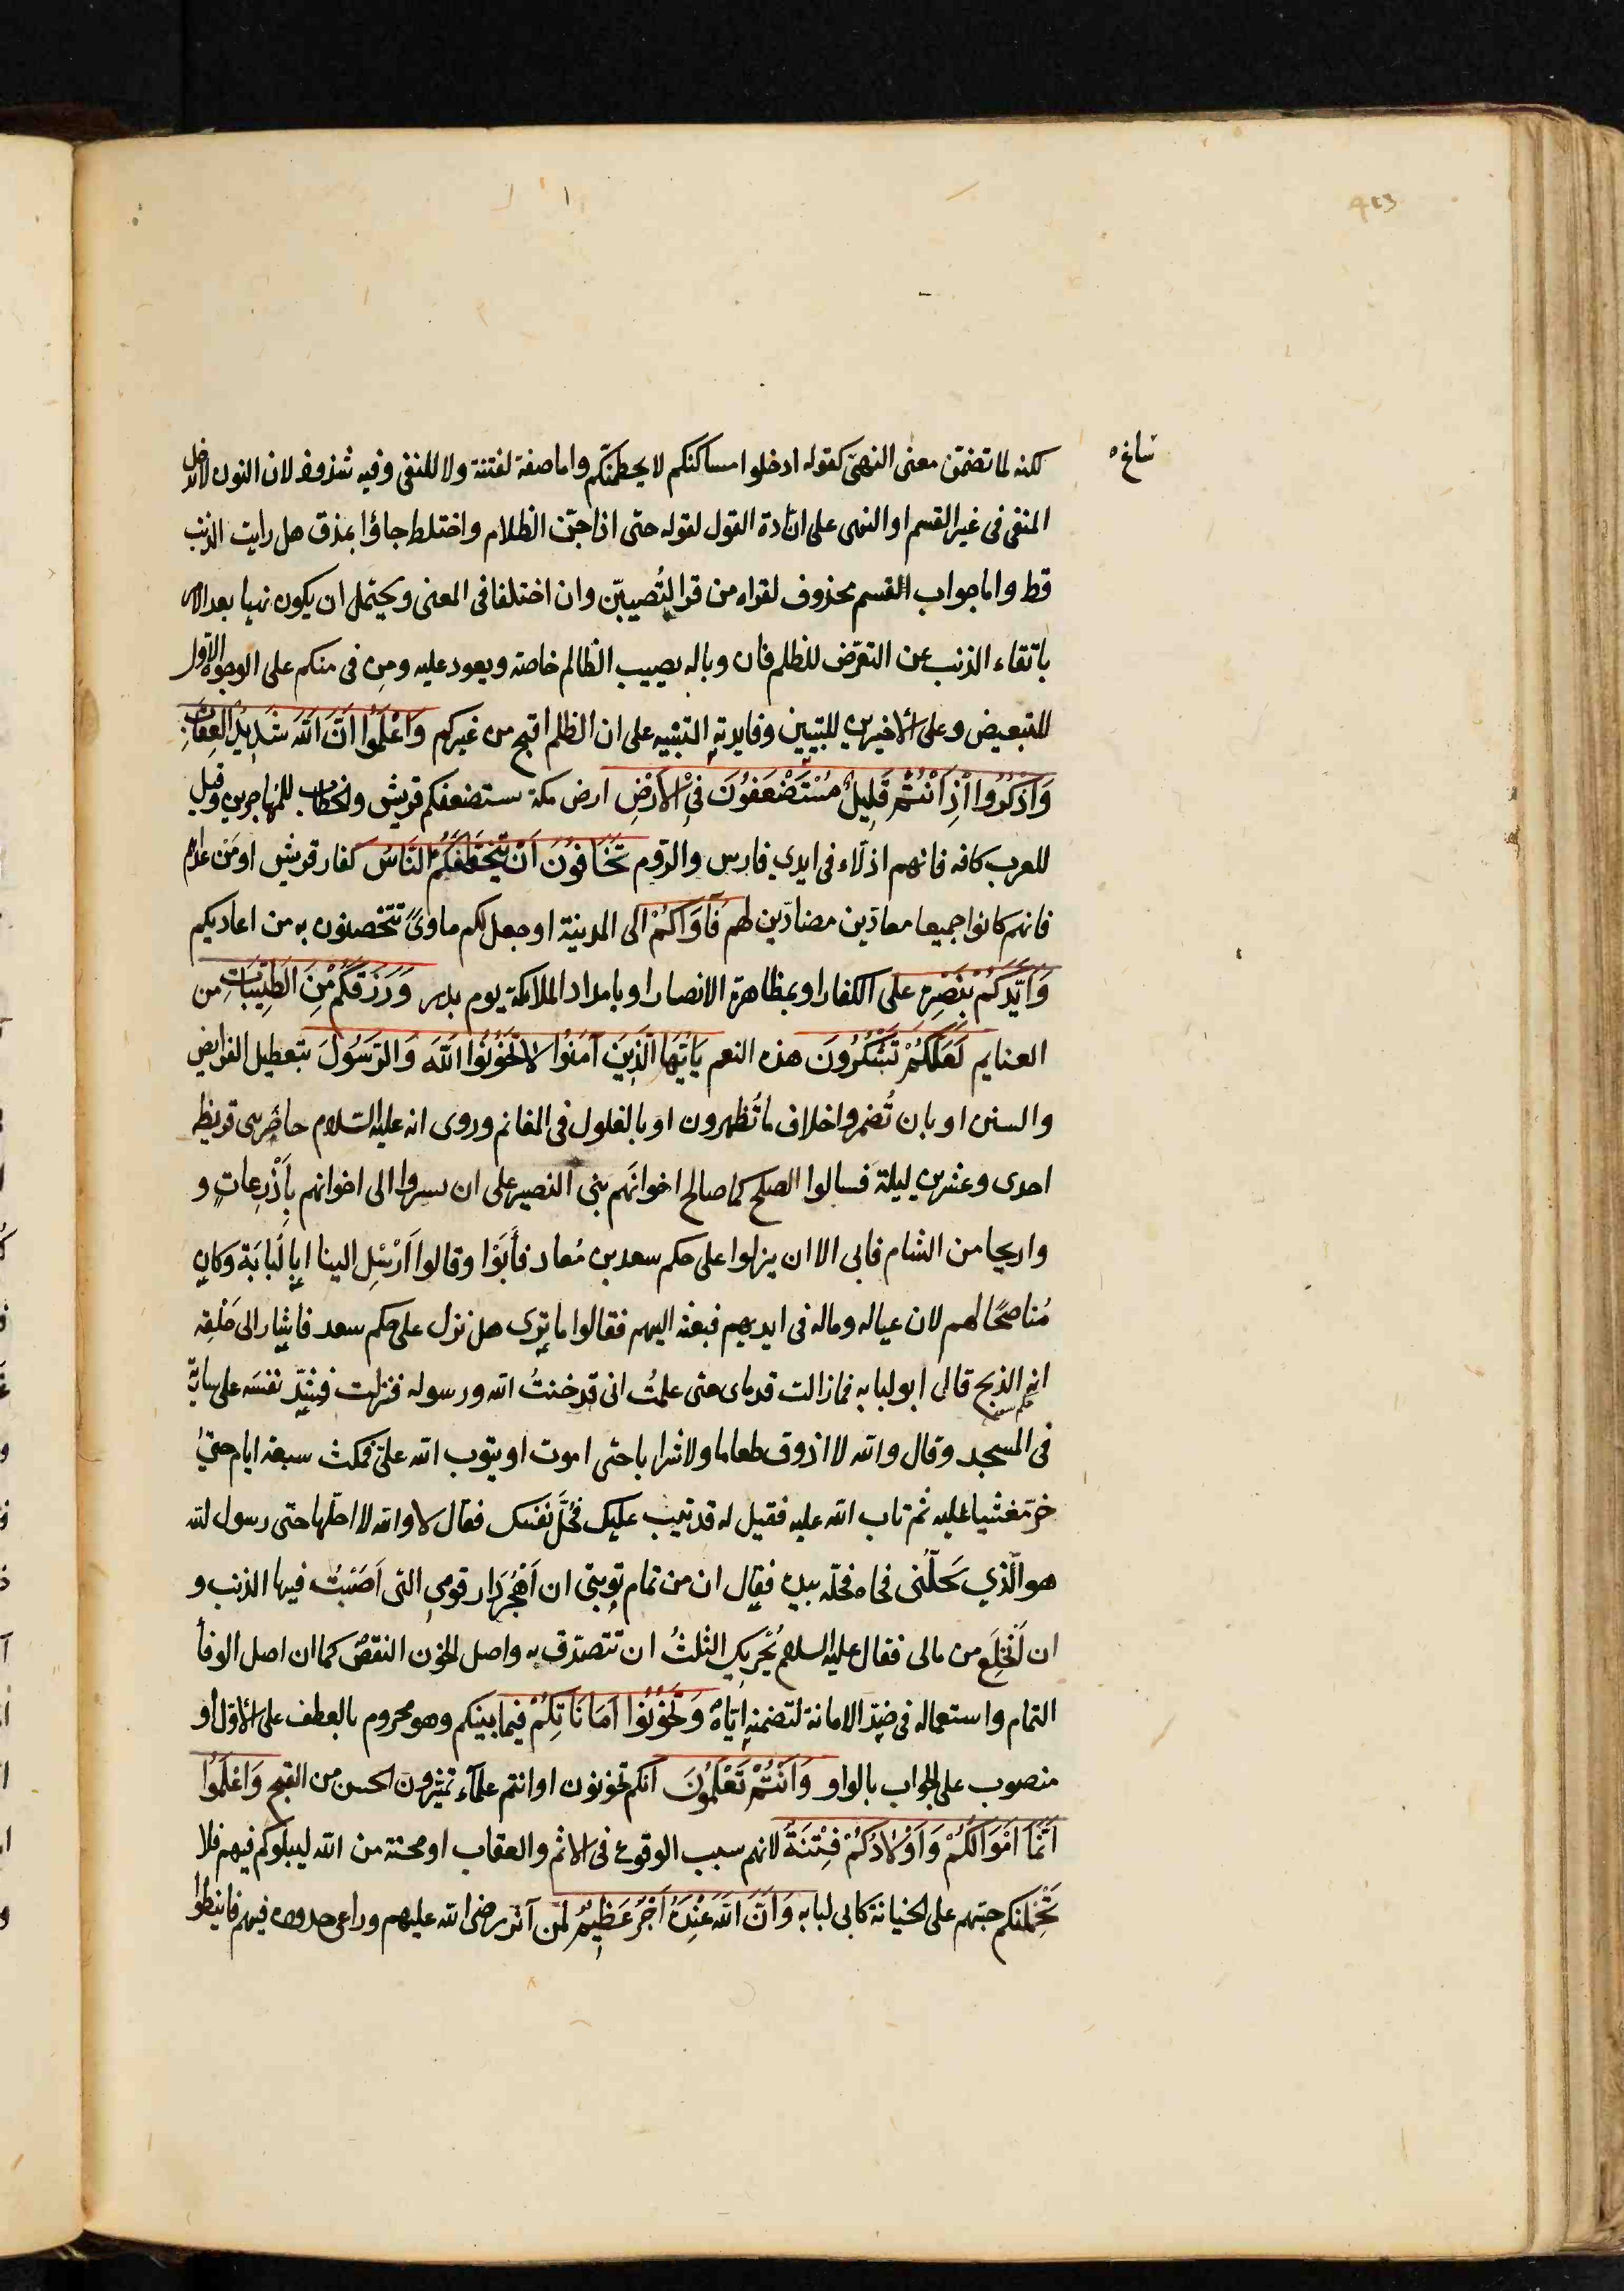 413
ساغ ه
لكنه لما تضمّن معنى النهى كقوله ادخلوا مساكنكم لا يحطمنّكم واما صفة لفتنة ولا للنفى وفيه شذوذ لان النون لا تدخل
المنفى فى غير القسم او النهى على ارادة القول لقوله حتى اذا جنّ الظلام واختلط جاؤا بمذق هل رايت الذئب
قط واما جواب القسم محذوف لقراه من قرا لتُصيبنّ وان اختلفا فى المعنى ويحتمل ان يكون نهيا بعد الامر
باتقاء الذنب عن التعرّض للظلم فان وباله يصيب الظالم خاصة ويعود عليه ومِن فى منكم على الوجوه الاول
للتبعيض وعلى الاخيرين للتبيين وفايدته التنبيه على ان الظلم اقبح من غيركم وَاعْلَمُوا اَنَّ اللّهَ شَدِيدُ العِقَابِ
وَاذْكُرُوا اِذْ اَنْتُمْ قَلِيلٌ مُسْتَضْعَفُونَ فِى الاَرْضِ ارض مكة يستضعفكم قريش والخطاب للمهاجرين وقيل
للعرب كافه فانهم اذلّاء فى ايدي فارس والروم تَخَافُونَ اَنْ يَتَخَطَّفَكُمُ النَّاسُ كفار قريش او مَن عداهم
فانهم كانوا جميعا معادّين مضادّين لهم فَآوَاكُمْ الى المدينة او جعل لكم ماوىً تتحصنون به من اعاديكم
وَاَيَّدَكُمْ بِنَصْرِهِ على الكفار او بمظاهرة الانصار او بامداد الملائكة يوم بدر وَرَزَقَكُمْ مِنَ الطَّيِّبَاتِ من
الغنايم لَعَلَّكُمْ تَشْكُرُونَ هذه النعم يَاَيُّهَا الَّذِينَ آمَنُوا لاَتَخُونُوا اللّهَ وَالرَّسُولَ بتعطيل الفرايض
والسنن او بان تُضمروا خلاف ما تُظهرون او بالغلول فى المغانم وروى انه عليه السّلام حاصَر بنى قريظه
احدى وعشرين ليلة فسالوا الصلح كما صالح اخوانَهم بنى النضير على ان يسيروا الى اخوانهم بِاَذْرِعاتٍ و
واريحا من الشام فابى الا ان ينزلوا على حكم سعد بن مُعاد فأَبَوْا وقالوا اَرْسِل الينا ابا لُبابَة وكان
مُناصحًا لهم لان عياله وماله فى ايديهم فبعثه اليهم فقالوا ما ترى هل ننزل على حكم سعد فاشار الى حَلْقِه
انه الذبح قال ابو لبابه فما زالت قدماى حتى علمتُ انى قد خنتُ اللّه ورسوله فنزلت فشدّ نفسَه على سارية
فى المسجد وقال واللّه لا اذوق طعاما ولا شرابا حتى اموت او يتوب اللّه علىّ فمكث سبعة ايام حتى
خرّ مغشيا عليه ثم تاب اللّه عليه فقيل له قد تيب عليك فحُلَّ نفسَك فقال لا واللّه لا احلّها حتى رسول للّه
هو الّذي يَحلّنى فجاه فحلّه بيده فقال ان من تمام توبتى ان اَهْجُرَ دَار قومي التى اَصَبْتُ فيها الذنب و
ان اَنْخَلِعَ من مالى فقال عليه السلام يُجْزيك الثلثُ ان تتصدّق به واصل الخون النقصُ كما ان اصل الوفأ
التمام واستعماله فى ضدّ الامانة لتضمنه ايّاه وَتَخُونُوا اَمَانَاتِكُمْ فيما بينكم وهو مجزوم بالعطف على الاوّل او
منصوب على الجواب بالواو وَاَنْتُمْ تَعْلَمُونَ انكم تخونون او انتم علمآء تميّزون الحسن من القبيح وَاعْلَمُوا
اَنَّمَا اَمْوَالُكُمْ وَاَوْلاَدُكُمْ فِتْنَةٌ لانهم سبب الوقوع فى الاثم والعقاب او محنة من اللّه ليبلوكم فيهم فلا
يَحْمِلنكم حبّهم على الخيانة كابى لبابه وَاَنَّ اللّهَ عِنْدَهُ اَجْرٌ عَظِيمٌ لمن آثر رضى اللّه عليهم وراعى حدوده فيهم فانيطوا